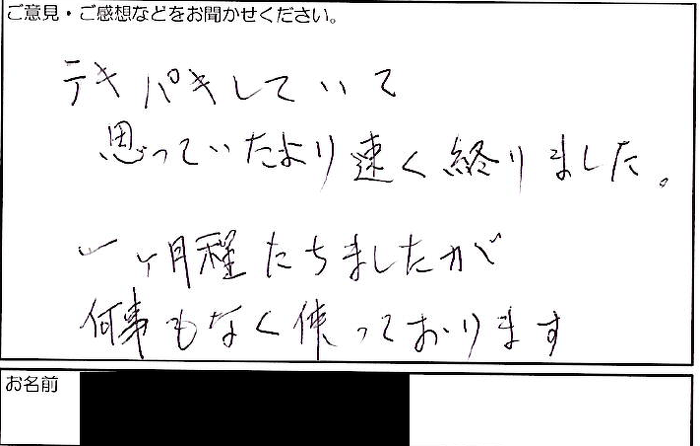 ご意見・ご感想などをお聞かせください。
テキパキしていて
思っていたより速く終りました。
一ヶ月程たちましたが
何事もなく使っております
お名前